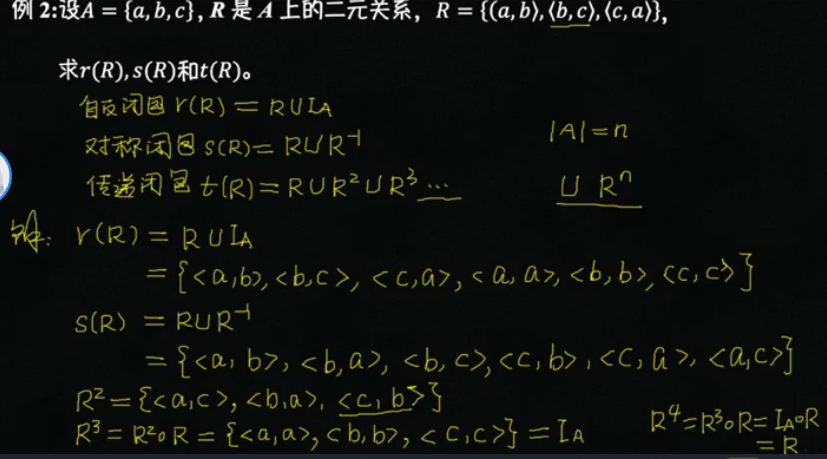 例 2:设A = {a, b, c}, R 是 A 上的二元关系，R = {⟨a, b⟩, ⟨b, c⟩, ⟨c, a⟩},
求r(R), s(R)和t(R)。
自反闭包 r(R) = R∪I_A
对称闭包 s(R) = R∪R⁻¹
|A| = n
传递闭包 t(R) = R∪R²∪R³ ... ∪ Rⁿ
解: r(R) = R∪I_A
= {<a,b>, <b,c>, <c,a>, <a,a>, <b,b>, <c,c>}
s(R) = R∪R⁻¹
= {<a,b>, <b,a>, <b,c>, <c,b>, <c,a>, <a,c>}
R² = {<a,c>, <b,a>, <c,b>}
R³ = R²∘R = {<a,a>, <b,b>, <c,c>} = I_A
R⁴ = R³∘R = I_A∘R
= R